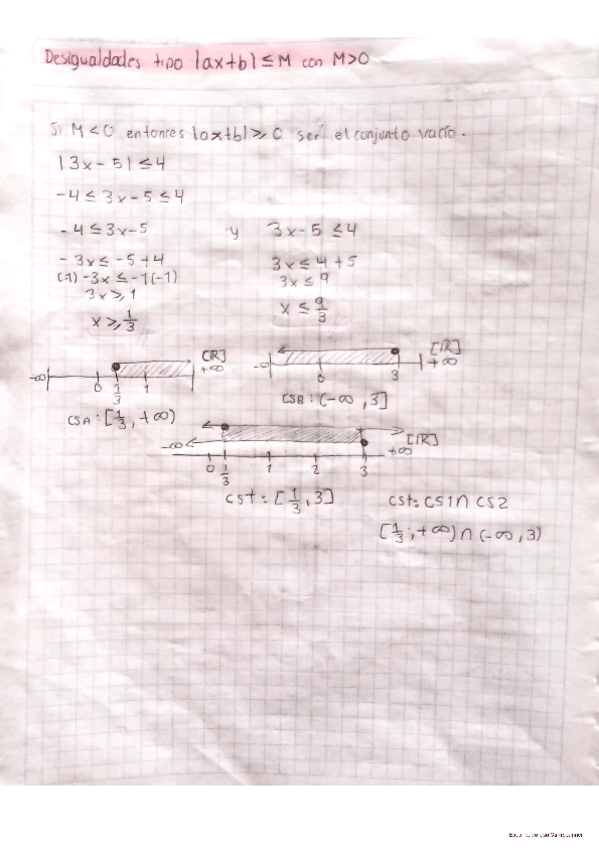 Desigualdades tipo |ax+b| ≤ M con M>0
Si M<0 entonces |ax+b| ≥ 0 ser el conjunto vacío.
|3x-5| ≤ 4
-4 ≤ 3x-5 ≤ 4
-4 ≤ 3x-5 y 3x-5 ≤ 4
-3x ≤ -5+4 3x ≤ 4+5
(-1) -3x ≤ -1(-1) 3x ≤ 9
3x ≥ 1 x ≤ 9/3
x ≥ 1/3
[IR] [IR]
-∞ 0 1/3 1 +∞ -∞ 0 3 +∞
CSA: [1/3, +∞) CSB: (-∞, 3]
-∞ 0 1/3 1 2 3 +∞ [IR]
CST: [1/3, 3] CST: CS1 ∩ CS2
[1/3; +∞) ∩ (-∞, 3)